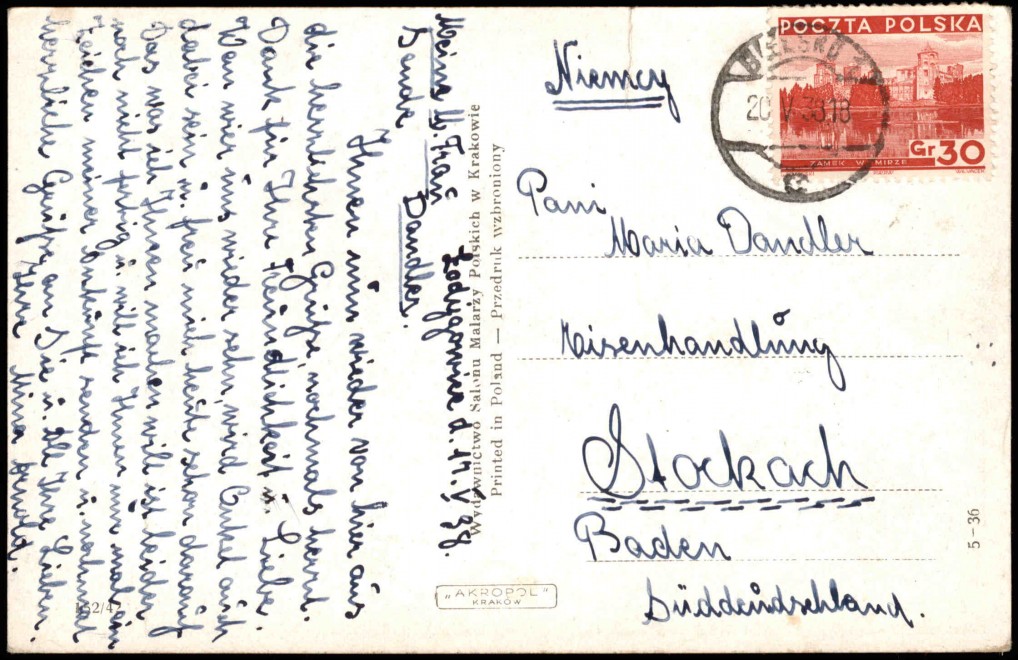 Meine w. Frau
Sende Dandler.
Łodygowice d. 17. V. 38.
Ihnen nun wieder von hier aus
die herzlichsten Grüße, nochmals herzl.
Dank für Ihre Freundlichkeit u. Liebe.
Wenn wir uns wieder sehn, wird Onkel auch
dabei sein u. freu mich heute schon darauf
Das was ich Ihnen malen will ist leider
noch nicht fertig u. will ich Ihnen nur mal ein
Zeichen meiner Ankunft senden u. nochmal
herzliche Grüße an Sie u. all Ihre Lieben.
Ihre Mina
Wydawnictwo Salonu Malarzy Polskich w Krakowie
Printed in Poland — Przedruk wzbroniony
152/42
"AKROPOL"
KRAKÓW
Niemcy
POCZTA POLSKA
BIELSKO
20 V 38.18
Gr 30
ZAMEK W MIRZE
Pani
Maria Dandler
Eisenhandlung
Stockach
Baden
Süddeutschland.
5-36